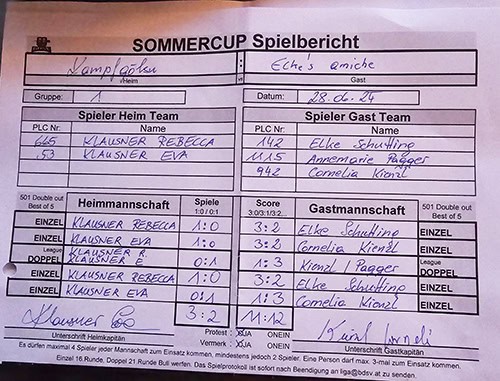 SOMMERCUP Spielbericht
: Elke's amiche
Heim Gast
Gruppe: 1 Datum: 28.06.24
Spieler Heim Team Spieler Gast Team
PLC Nr. Name PLC Nr. Name
665 KLAUSNER REBECCA 142 Elke Schutling
53 KLAUSNER EVA 1115 Annemarie Pagger
942 Cornelia Kienzl
501 Double out Best of 5 Heimmannschaft Spiele 1:0 / 0:1 Score 3:0/3:1/3:2... Gastmannschaft 501 Double out Best of 5
EINZEL KLAUSNER REBECCA 1:0 3:2 Elke Schutling EINZEL
EINZEL KLAUSNER EVA 1:0 3:2 Cornelia Kienzl EINZEL
League DOPPEL KLAUSNER R. KLAUSNER E 0:1 1:3 Kienzl / Pagger League DOPPEL
EINZEL KLAUSNER REBECCA 1:0 3:2 Elke Schutling EINZEL
EINZEL KLAUSNER EVA 0:1 1:3 Cornelia Kienzl EINZEL
Klausner 3:2 11:12
Unterschrift Heimkapitän Protest : JA ONEIN Unterschrift Gastkapitän
Vermerk : JA ONEIN
Es dürfen maximal 4 Spieler jeder Mannschaft zum Einsatz kommen, mindestens jedoch 2 Spieler. Eine Person darf max. 3-mal zum Einsatz kommen.
Einzel 16.Runde, Doppel 21.Runde Bull werfen. Das Spielprotokoll ist sofort nach Beendigung an liga@bdsv.at zu senden.